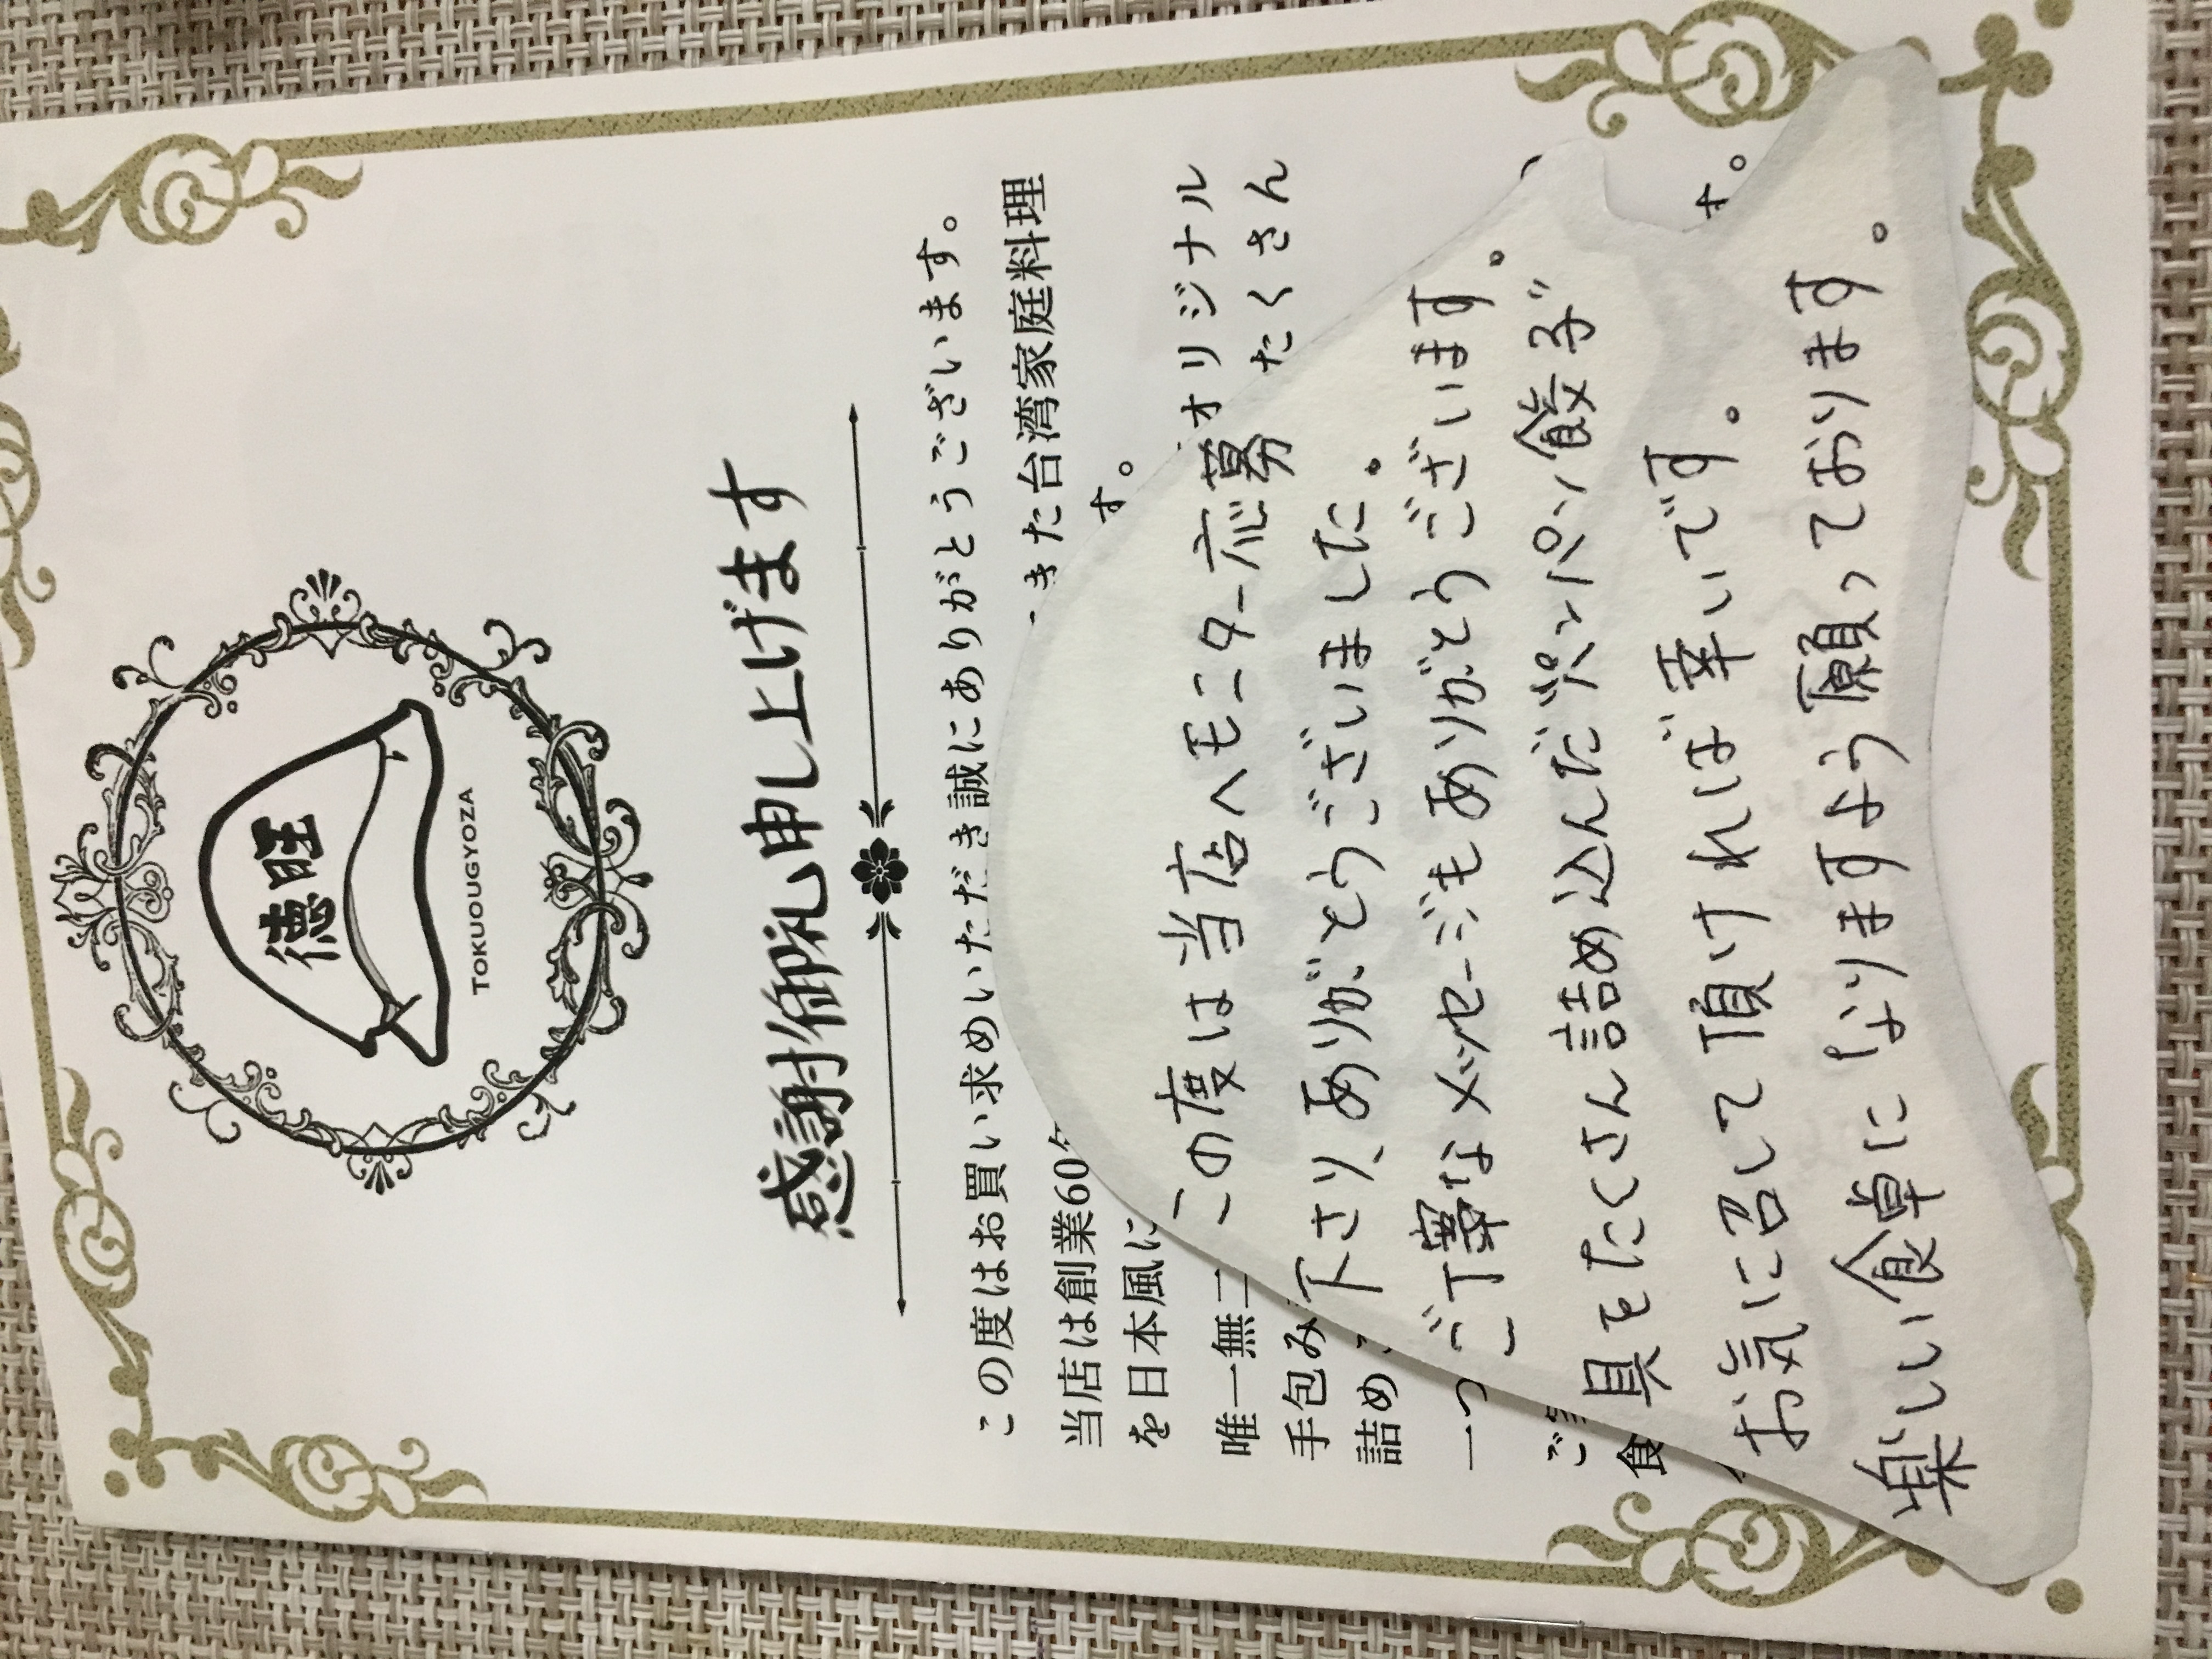 徳旺
TOKUOUGYOZA
感謝御礼申し上げます
この度はお買い求めいただき誠にありがとうございます。
当店は創業60
きた台湾家庭料理
を日本風に
す。
唯一無二
オリジナル
手包み
たくさん
詰め
一つ
食
す。
この度は当店へモニター応募
下さり、ありがとうございました。
ご丁寧なメッセージもありがとうございます。
具をたくさん詰め込んだパンパン餃子
お気に召して頂ければ幸いです。
楽しい食卓になりますよう願っております。